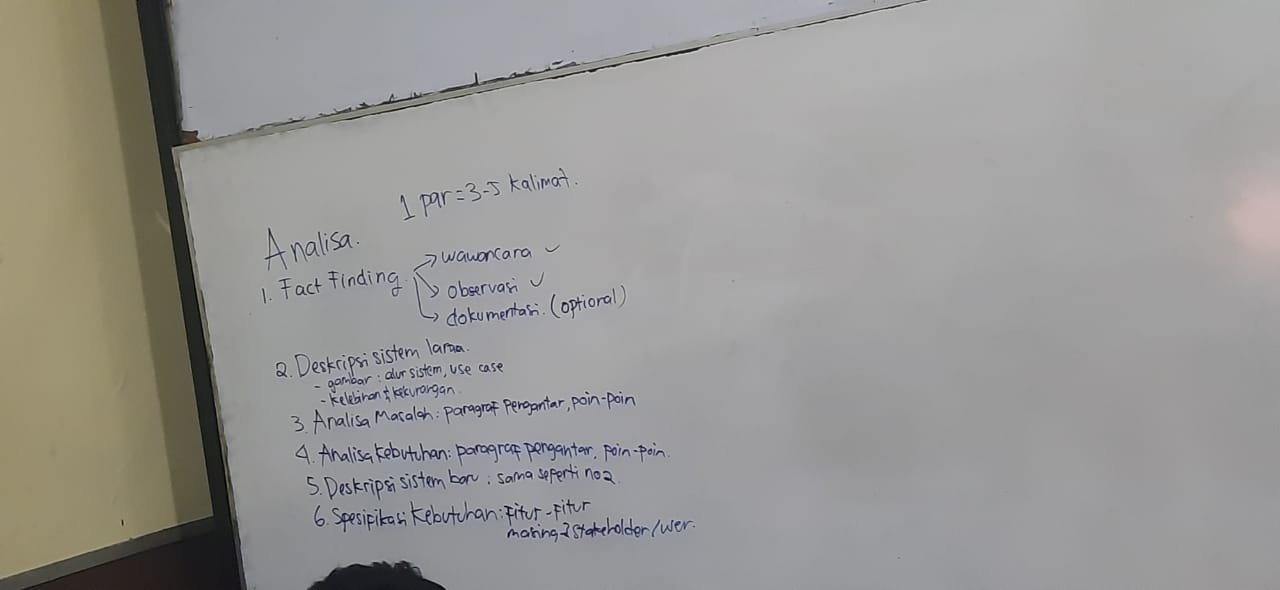 1 par = 3-5 kalimat.
Analisa.
1. Fact Finding
wawancara ✓
observasi ✓
dokumentasi. (optional)
2. Deskripsi sistem lama.
- gambar : alur sistem, use case
- kelebihan & kekurangan
3. Analisa Masalah : paragraf pengantar, poin-poin
4. Analisa kebutuhan : paragraf pengantar, poin-poin.
5. Deskripsi sistem baru : sama seperti no 2
6. Spesifikasi Kebutuhan : Fitur-Fitur
masing2 stakeholder/user.